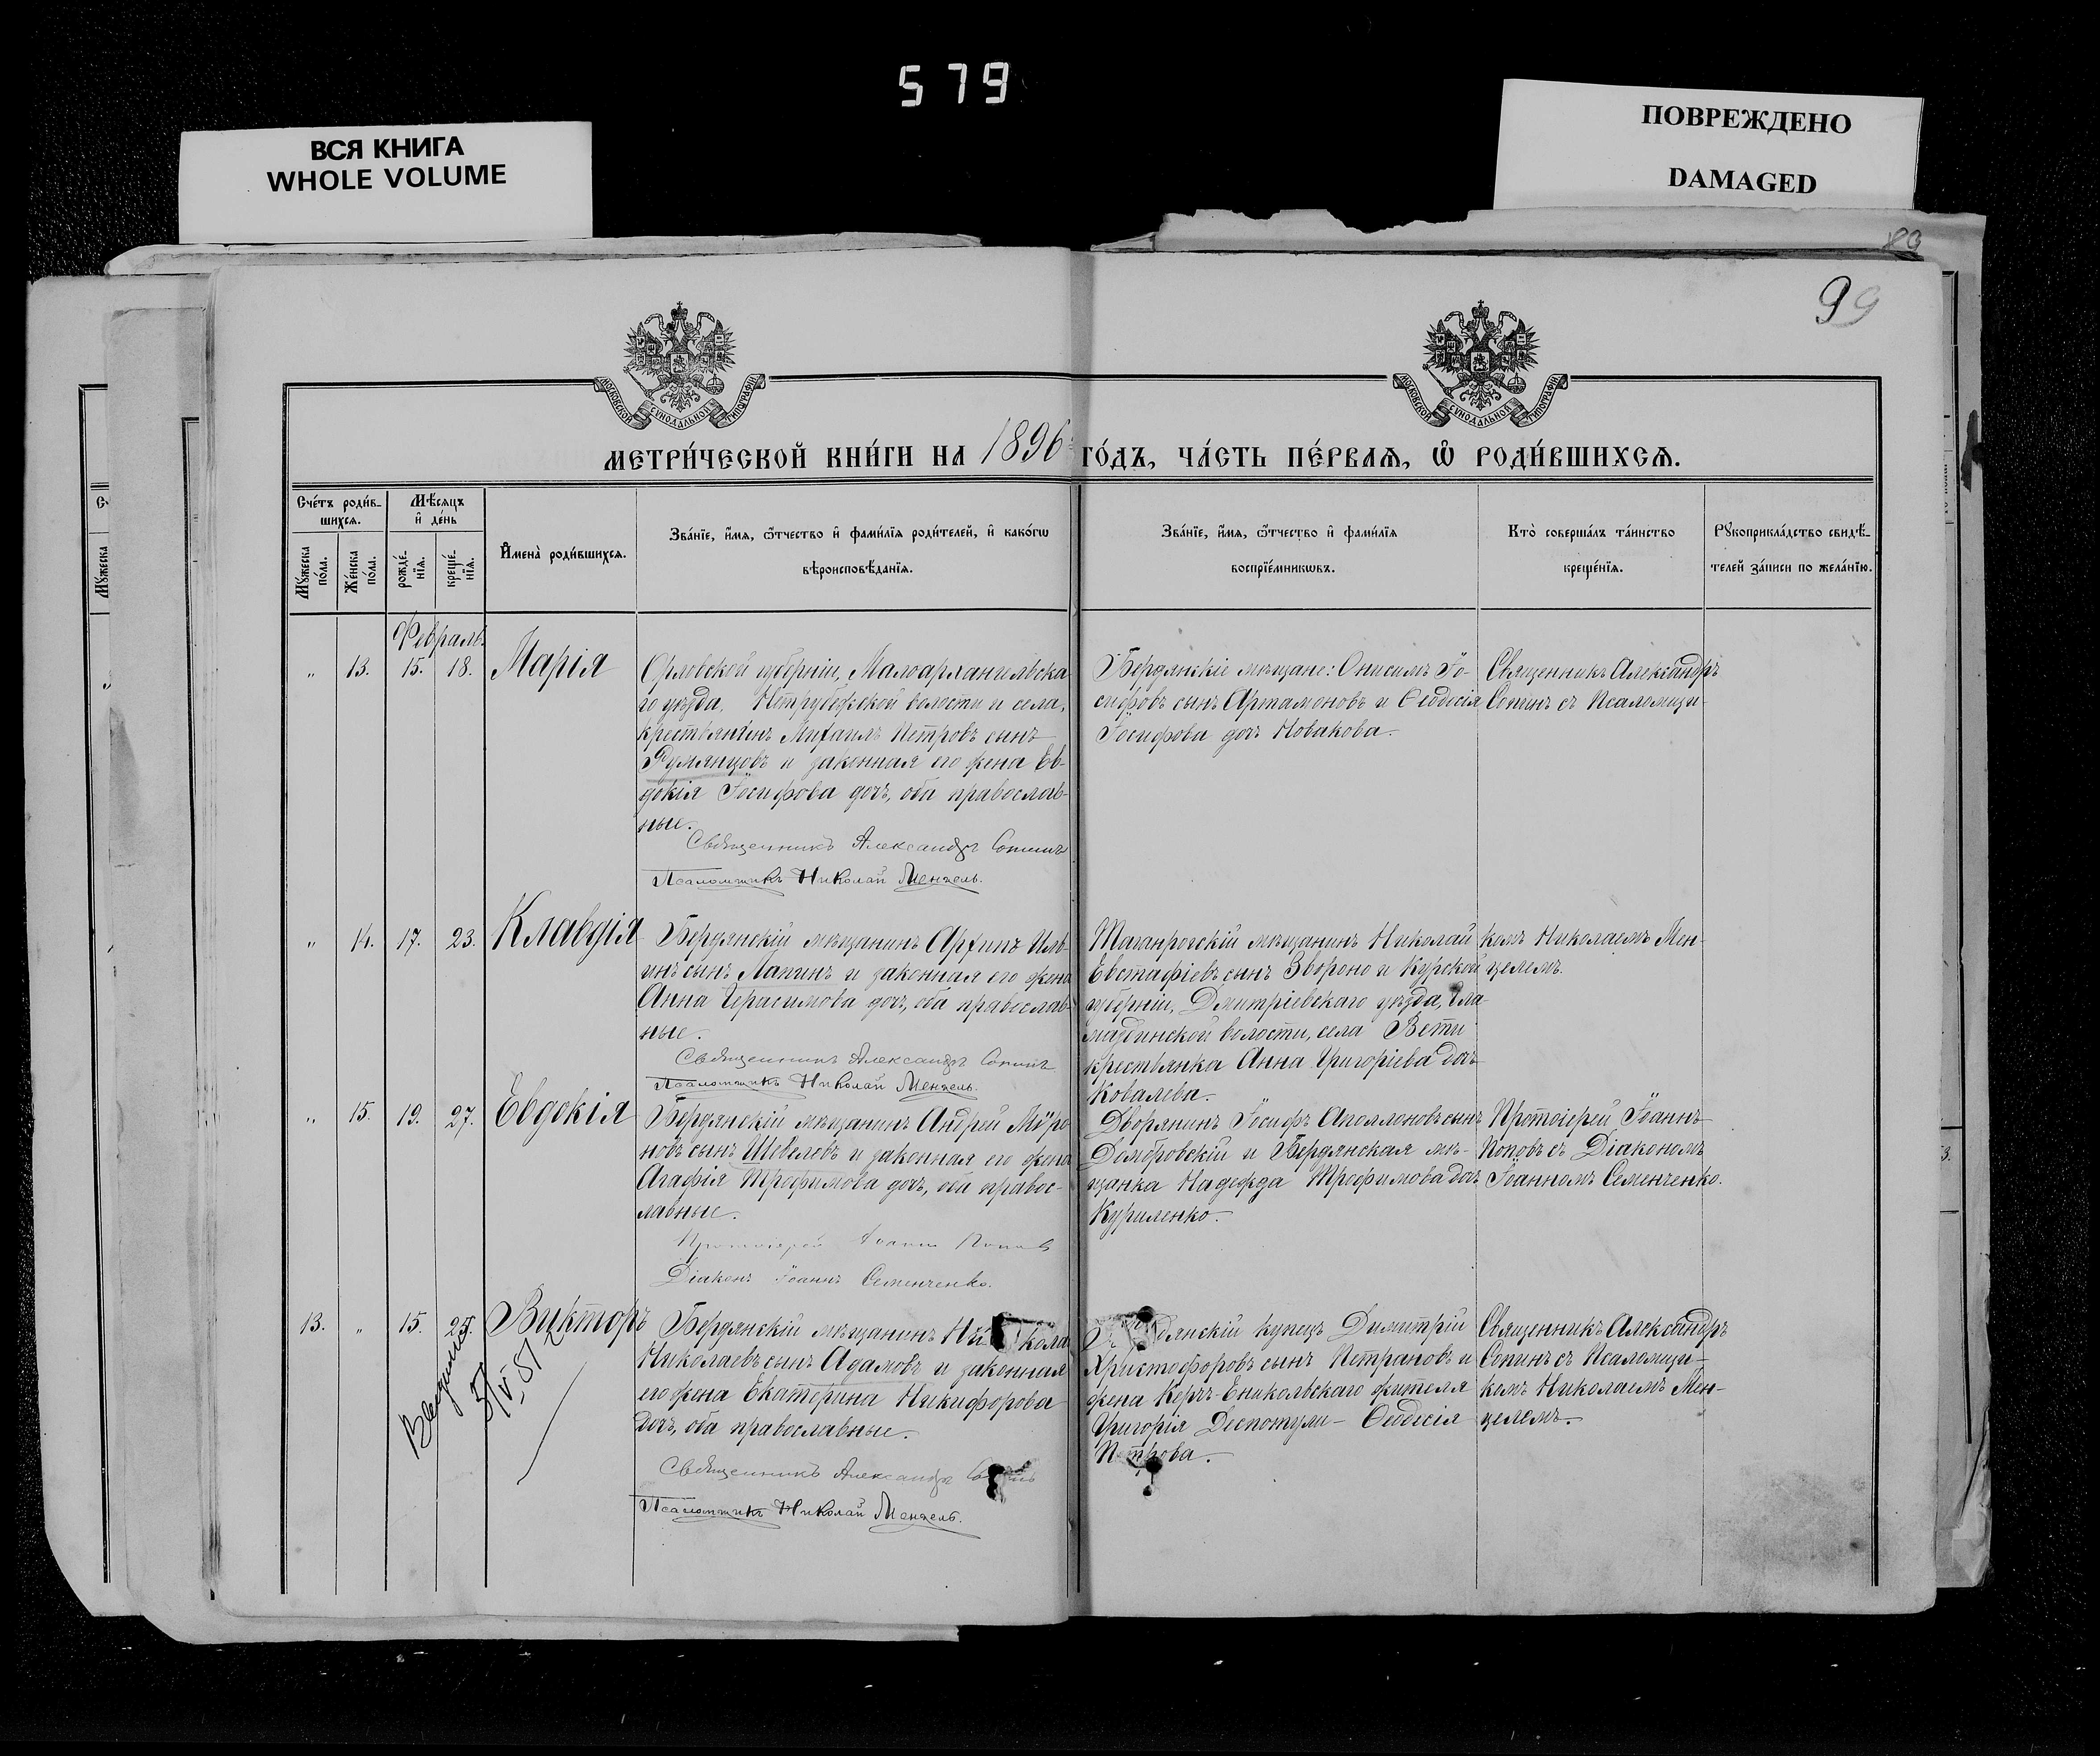 579
ВСЯ КНИГА
WHOLE VOLUME
ПОВРЕЖДЕНО
DAMAGED
99
МОСКОВСКОЙ СУНОДАЛЬНОЙ ТИПОГРАФІИ
МОСКОВСКОЙ СУНОДАЛЬНОЙ ТИПОГРАФІИ
МЕТРИ́ЧЕСКОЙ КНИ́ГИ НА 1896 ГО́ДЪ, ЧА́СТЬ ПЕ́РВАѦ, Ѡ҆ РОДИ́ВШИХСѦ.
Счетъ родив-
шихсѧ.
Мѣсяцъ
и день
Мꙋжеска
пола.
Женска
пола.
рожде-
нїѧ.
креще-
нїѧ.
Имена родившихсѧ.
Званїе, имѧ, ѿчество и фамилїѧ родителей, и какогѡ
вѣроисповѣданїѧ.
Званїе, имѧ, ѿчество и фамилїѧ
воспрїемникѡвъ.
Кто совершалъ таинство
крещенїѧ.
Рꙋкоприкладство свидѣ-
телей записи по желанїю.
Февраль.
" 13. 15. 18. Марія
Орловской губерніи, Малоархангельска
го уѣзда, волости и села,
крестьянинъ Михаилъ Петровъ сынъ
Румянцовъ и законная его жена Ев-
докія Іосифова дочь, оба православ-
ные.
Священникъ Александръ Сопинъ
Псаломщикъ Николай Менцель.
Бердянскіе мѣщане: Онисимъ Іо-
сифовъ сынъ Артамоновъ и Ѳеодосія
Іосифова дочь Новакова.
Священникъ Александръ
Сопинъ съ Псаломщи-
" 14. 17. 23. Клавдія
Бердянскій мѣщанинъ Архипъ Иль-
инъ сынъ Лапинъ и законная его жена
Анна Герасимова дочь, оба православ-
ные.
Священникъ Александръ Сопинъ
Псаломщикъ Николай Менцель.
Таганрогскій мѣщанинъ Николай
Евстафіевъ сынъ Звороно и Курской
губерніи, Дмитріевскаго уѣзда,
волости, села
крестьянка Анна Григоріева дочь
Ковалева.
комъ Николаемъ Мен-
целемъ.
" 15. 19. 27. Евдокія
Бердянскій мѣщанинъ Андрей Мѵро-
новъ сынъ Шевелевъ и законная его жена
Агафія Трофимова дочь, оба правос-
лавные.
Протоіерей Іоаннъ Поповъ
Діаконъ Іоаннъ Семенченко.
Дворянинъ Іосифъ Аполлоновъ сынъ
Домбровскій и Бердянская мѣ-
щанка Надежда Трофимова дочь
Куриленко.
Протоіерей Іоаннъ
Поповъ съ Діакономъ
Іоанномъ Семенченко.
13. " 15. 25. Викторъ
Бердянскій мѣщанинъ Ни кола
Николаевъ сынъ Адамовъ и законная
его жена Екатерина Никифорова
дочь, оба православные.
Священникъ Александръ
Псаломщикъ Николай Менцель.
дянскій купецъ Димитрій
Христофоровъ сынъ Петрановъ и
жена Керчь-Еникольскаго жителя
Григорія Деспотули - Ѳеодосія
Петрова.
Священникъ Александръ
Сопинъ съ Псаломщи-
комъ Николаемъ Мен-
целемъ.